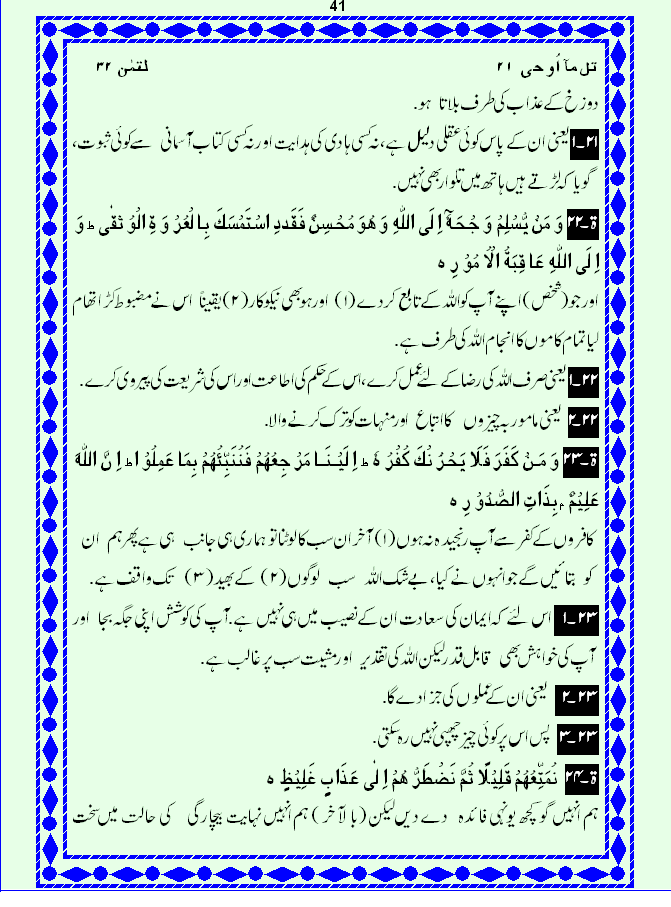 41
تل مآ أوحی ۲۱ لقمٰن ۳۲
دوزخ کے عذاب کی طرف بلاتا ہو۔
۲۱۔۱ یعنی ان کے پاس کوئی عقلی دلیل ہے، نہ کسی ہادی کی ہدایت اور نہ کسی کتاب آسمانی سے کوئی ثبوت،
گویا کہ لڑتے ہیں ہاتھ میں تلوار بھی نہیں۔
ۃ۔۲۲ وَ مَنْ یُّسْلِمْ وَ جْھَہٗٓ اِلَی اللّٰہِ وَ ھُوَ مُحْسِنٌ فَقَدِ اسْتَمْسَکَ بِا لْعُرْ وَ ۃِ الْوُ ثْقٰی ط وَ
اِ لَی اللّٰہِ عَا قِبَۃُ الْاُ مُوْ رِ ہ
اور جو (شخص) اپنے آپ کو اللہ کے تابع کر دے (۱) اور ہو بھی نیکوکار (۲) یقیناً اس نے مضبوط کڑا تھام
لیا تمام کاموں کا انجام اللہ کی طرف ہے۔
۲۲۔۱ یعنی صرف اللہ کی رضا کے لئے عمل کرے، اس کے حکم کی اطاعت اور اس کی شریعت کی پیروی کرے۔
۲۲۔۲ یعنی مامور بہ چیزوں کا اتباع اور منہات کو ترک کرنے والا۔
ۃ۔۲۳ وَ مَنْ کَفَرَ فَلَا یَحْزُ نْکَ کُفْرُ ہٗ ط اِ لَیْنَا مَرْ جِعُھُمْ فَنُنَبِّئُھُمْ بِمَا عَمِلُوْ ا ط اِ نَّ اللّٰہَ
عَلِیْمٌ م بِذَاتِ الصُّدُوْ رِ ہ
کافروں کے کفر سے آپ رنجیدہ نہ ہوں (۱) آخر ان سب کا لوٹنا تو ہماری ہی جانب ہی ہے پھر ہم ان
کو بتائیں گے جو انہوں نے کیا، بے شک اللہ سب لوگوں (۲) کے بھید (۳) تک واقف ہے۔
۲۳۔۱ اس لئے کہ ایمان کی سعادت ان کے نصیب میں ہی نہیں ہے۔ آپ کی کوشش اپنی جگہ بجا اور
آپ کی خواہش بھی قابل قدر لیکن اللہ کی تقدیر اور مشیت سب پر غالب ہے۔
۲۳۔۲ یعنی ان کے عملوں کی جزا دے گا۔
۲۳۔۳ پس اس پر کوئی چیز چھپی نہیں رہ سکتی۔
ۃ۔۲۴ نُمَتِّعُھُمْ قَلِیْلًا ثُمَّ نَضْطَرُّ ھُمْ اِ لٰی عَذَابٍ غَلِیْظٍ ہ
ہم انہیں گو کچھ یونہی فائدہ دے دیں لیکن (بالآخر) ہم انہیں نہایت بیچارگی کی حالت میں سخت